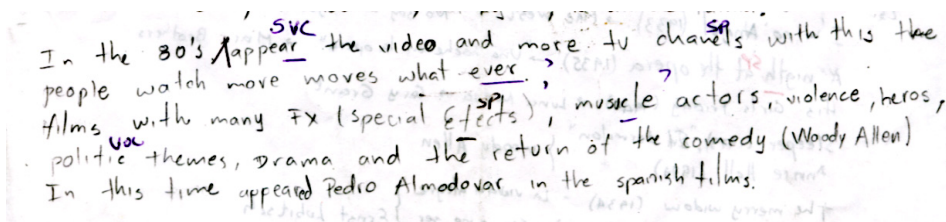 SVC SP
In the 80's appear the video and more tv chanels with this the
people watch more moves what ever. ? ?
SP
films with many FX (special Efects), muscle actors, violence, heros,
voc
politic themes, Drama and the return of the comedy (Woody Allen)
In this time appeared Pedro Almodovar in the spanish films.